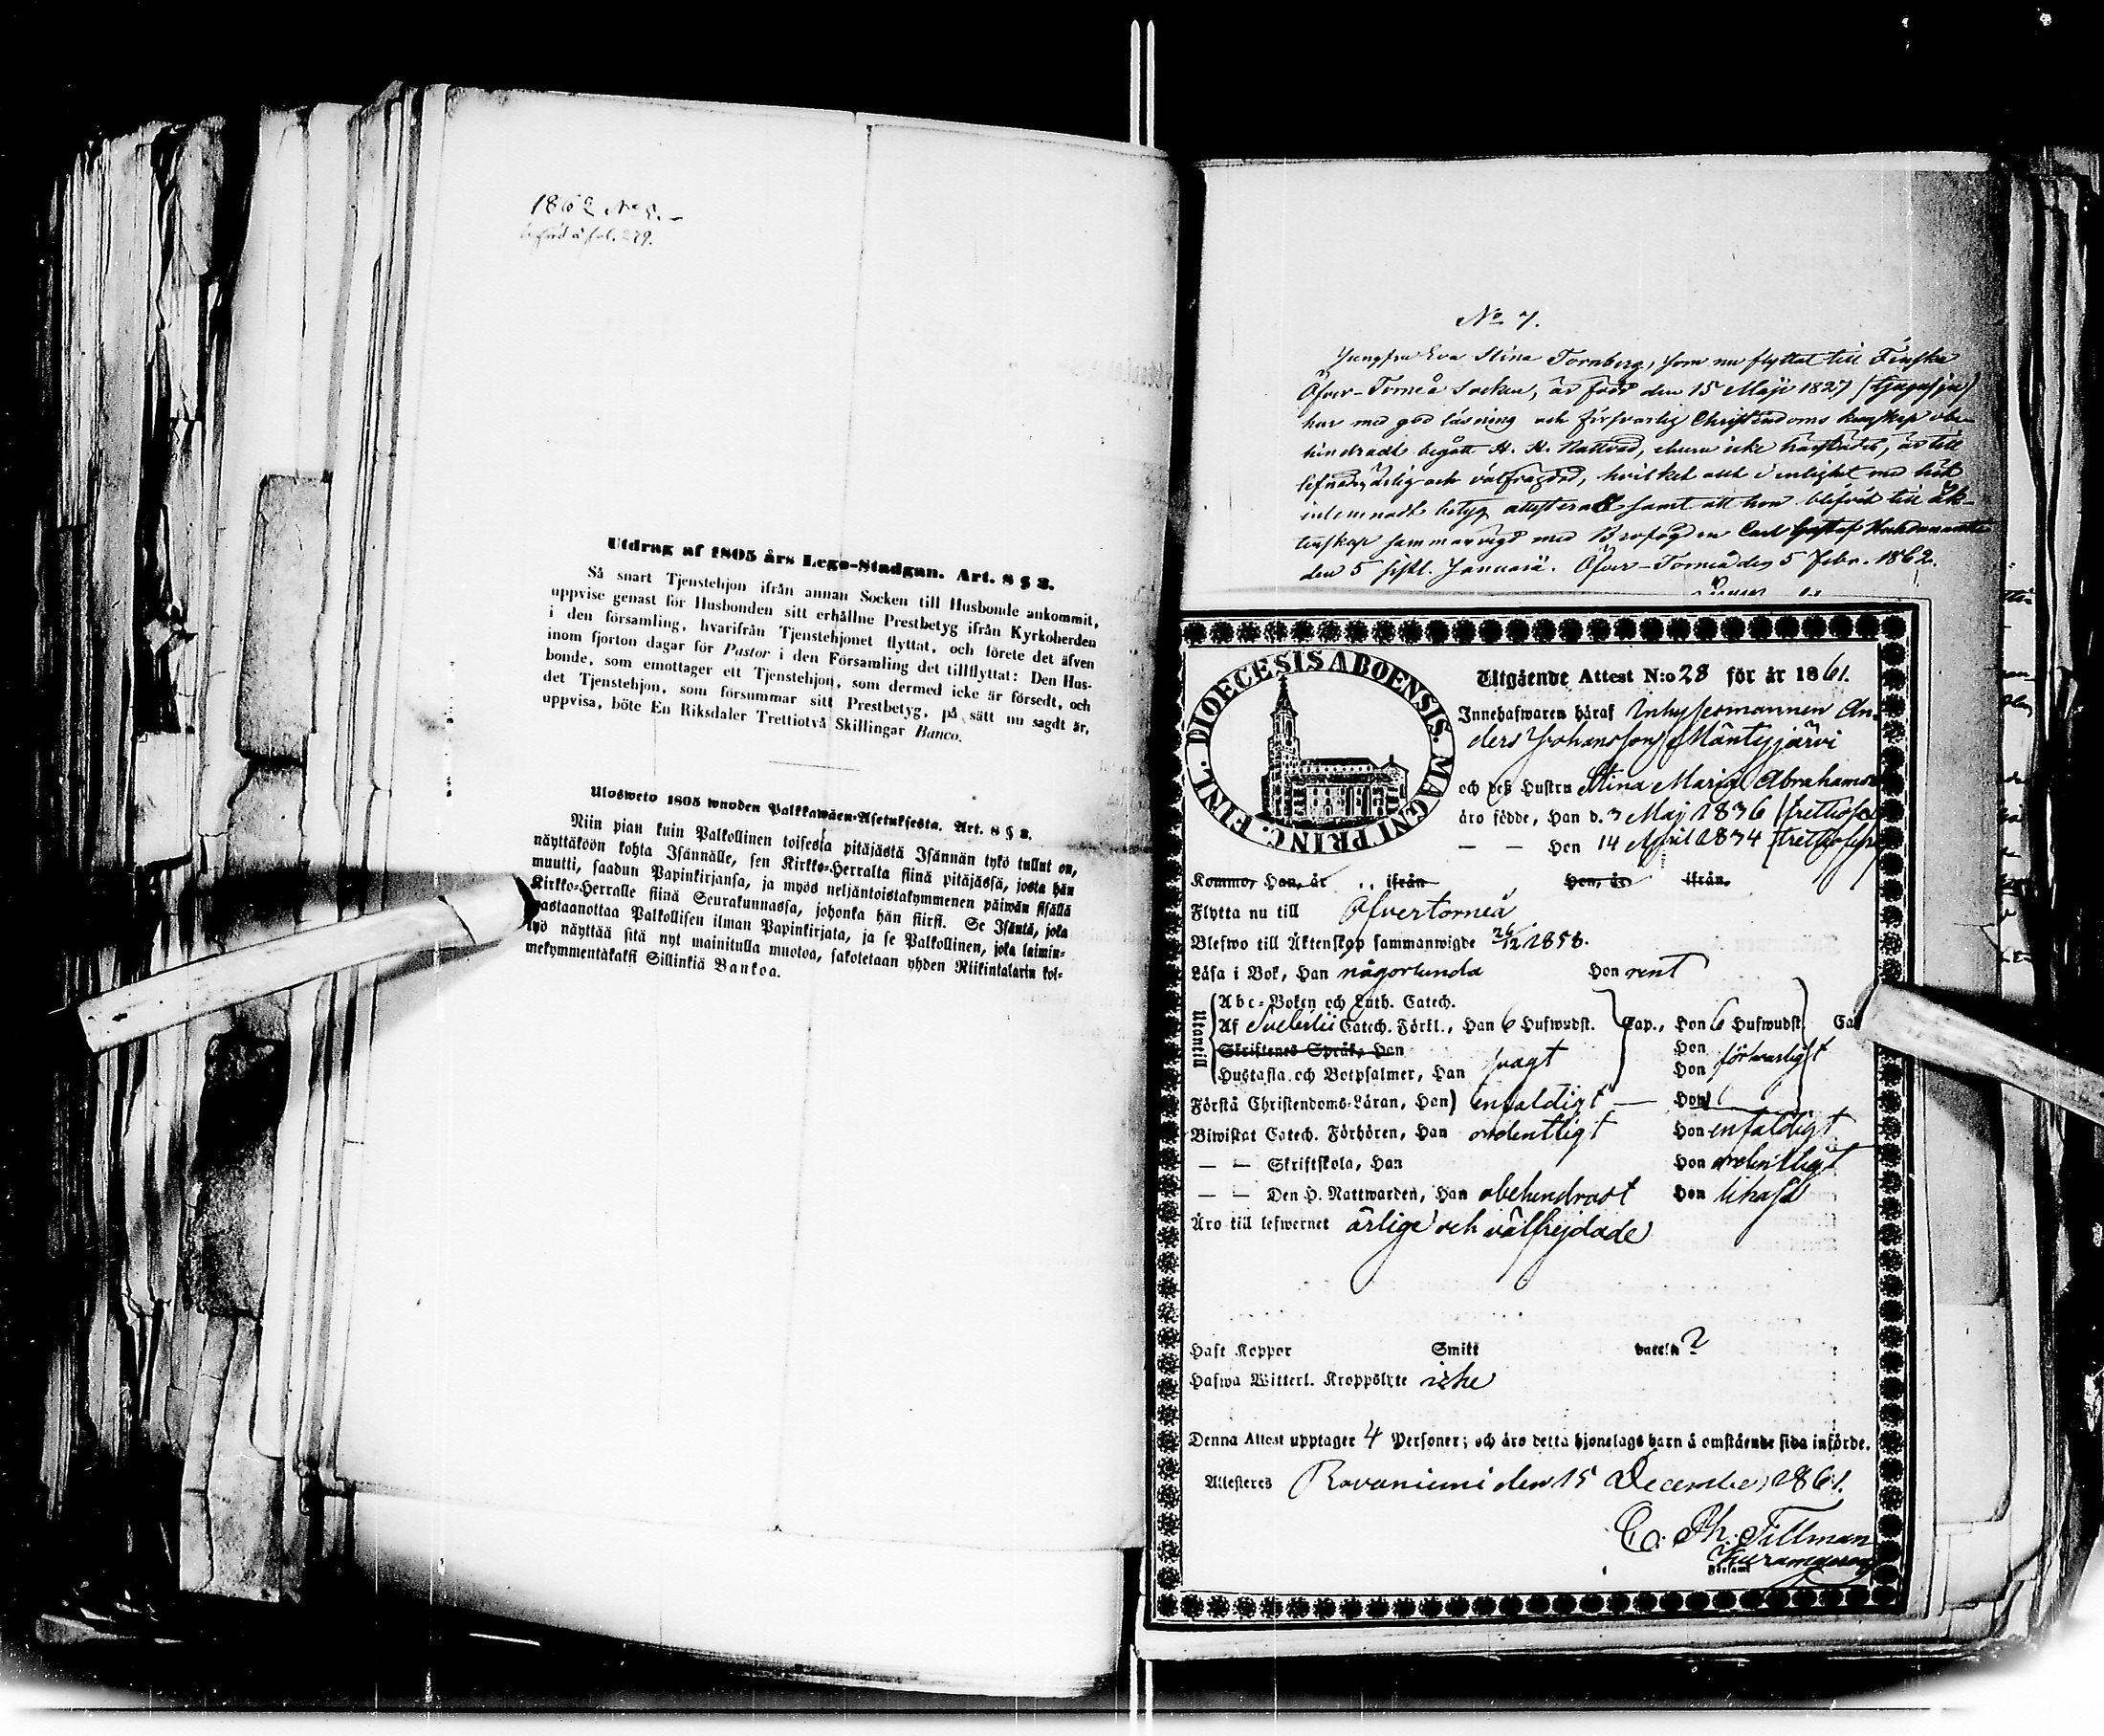 1862 No 8.
införd å fol. 279.
Utdrag af 1805 års Lego-Stadgan. Art. 8 § 3.
Så snart Tjenstehjon ifrån annan Socken till Husbonde ankommit,
uppvise genast för Husbonden sitt erhållne Prestbetyg ifrån Kyrkoherden
i den församling, hvarifrån Tjenstehjonet flyttat, och förete det äfven
inom fjorton dagar för Pastor i den Församling det tillflyttat: Den Hus-
bonde, som emottager ett Tjenstehjon, som dermed icke är försedt, och
det Tjenstehjon, som försummar sitt Prestbetyg, på sätt nu sagdt är,
uppvisa, böte En Riksdaler Trettiotvå Skillingar Banco.
Ulosweto 1805 wuoden Palkkawäen-Asetuksesta. Art. 8 § 3.
Niin pian kuin Palkollinen toisesta pitäjästä Isännän tykö tullut on,
näyttäköön kohta Isännälle, sen Kirkko-Herralta siinä pitäjässä, josta hän
muutti, saadun Papinkirjansa, ja myös neljäntoistakymmenen päiwän sisällä
Kirkko-Herralle siinä Seurakunnassa, johonka hän siirsi. Se Isäntä, joka
wastaanottaa Palkollisen ilman Papinkirjata, ja se Palkollinen, joka laimin-
lyö näyttää sitä nyt mainitulla muotoa, sakotetaan yhden Riikintalarin kol-
mekymmentäkaksi Sillinkiä Bankoa.
No 7.
Jungfru Eva Stina Tornberg, som nu flyttat till Finska
Öfver-Torneå Socken, är född den 15 Maji 1827 (tjugusju)
har med god läsning och försvarlig Christendoms kunskap obe-
hindradt begått H. H. Nattvard, ehuru icke härstädes, är till
lefnad ärlig och välfrägdad, hvilket allt i enlighet med hit
inlemnadt betyg attesteras samt att hon blifvit till äk-
tenskap sammanvigd med Brofogden Carl Gustaf
den 5 sistl. Januarii. Öfver-Torneå den 5 Febr. 1862.
DIOECESIS ABOENSIS. MAGNI PRINC. FINL.
Utgående Attest N:o 28 för år 1861.
Innehafwaren häraf Inhysesmannen An-
ders Johansson Mäntyjärvi
och deß Hustru Stina Maria Abrahams
äro födde, Han d. 3 Maj 1836 (trettiosex
— — Hon 14 April 1834 (trettiofyra
Kommo, Han, år ifrån Hon, år ifrån.
Flytta nu till Öfvertorneå
Blefwo till Äktenskap sammanwigde 26/12 1858.
Läsa i Bok, Han någorlunda Hon rent
Utantill
Abc-Boken och Luth. Catech.
Af Svebilii Catech. Förkl., Han 6 Hufwudst. Cap., Hon 6 Hufwudst. Ca
Skriftenes Språk, Han Hon
Hustafla och Botpsalmer, Han svagt Hon försvarligt
Förstå Christendoms-Läran, Han enfaldigt — Hon
Biwistat Catech. Förhören, Han ordentligt Hon enfaldigt
— — Skriftskola, Han Hon ordentligt
— — Den H. Nattwarden, Han obehindradt Hon likaså
Äro till lefwernet ärlige och välfrejdade
Haft Koppor Smitt vaccin ?
Hafwa Witterl. Kroppslyte icke
Denna Attest upptager 4 Personer; och äro detta hjonelags barn å omstående sida införde.
Attesteres Rovaniemi den 15 December 1861.
C. Ph. Tillman